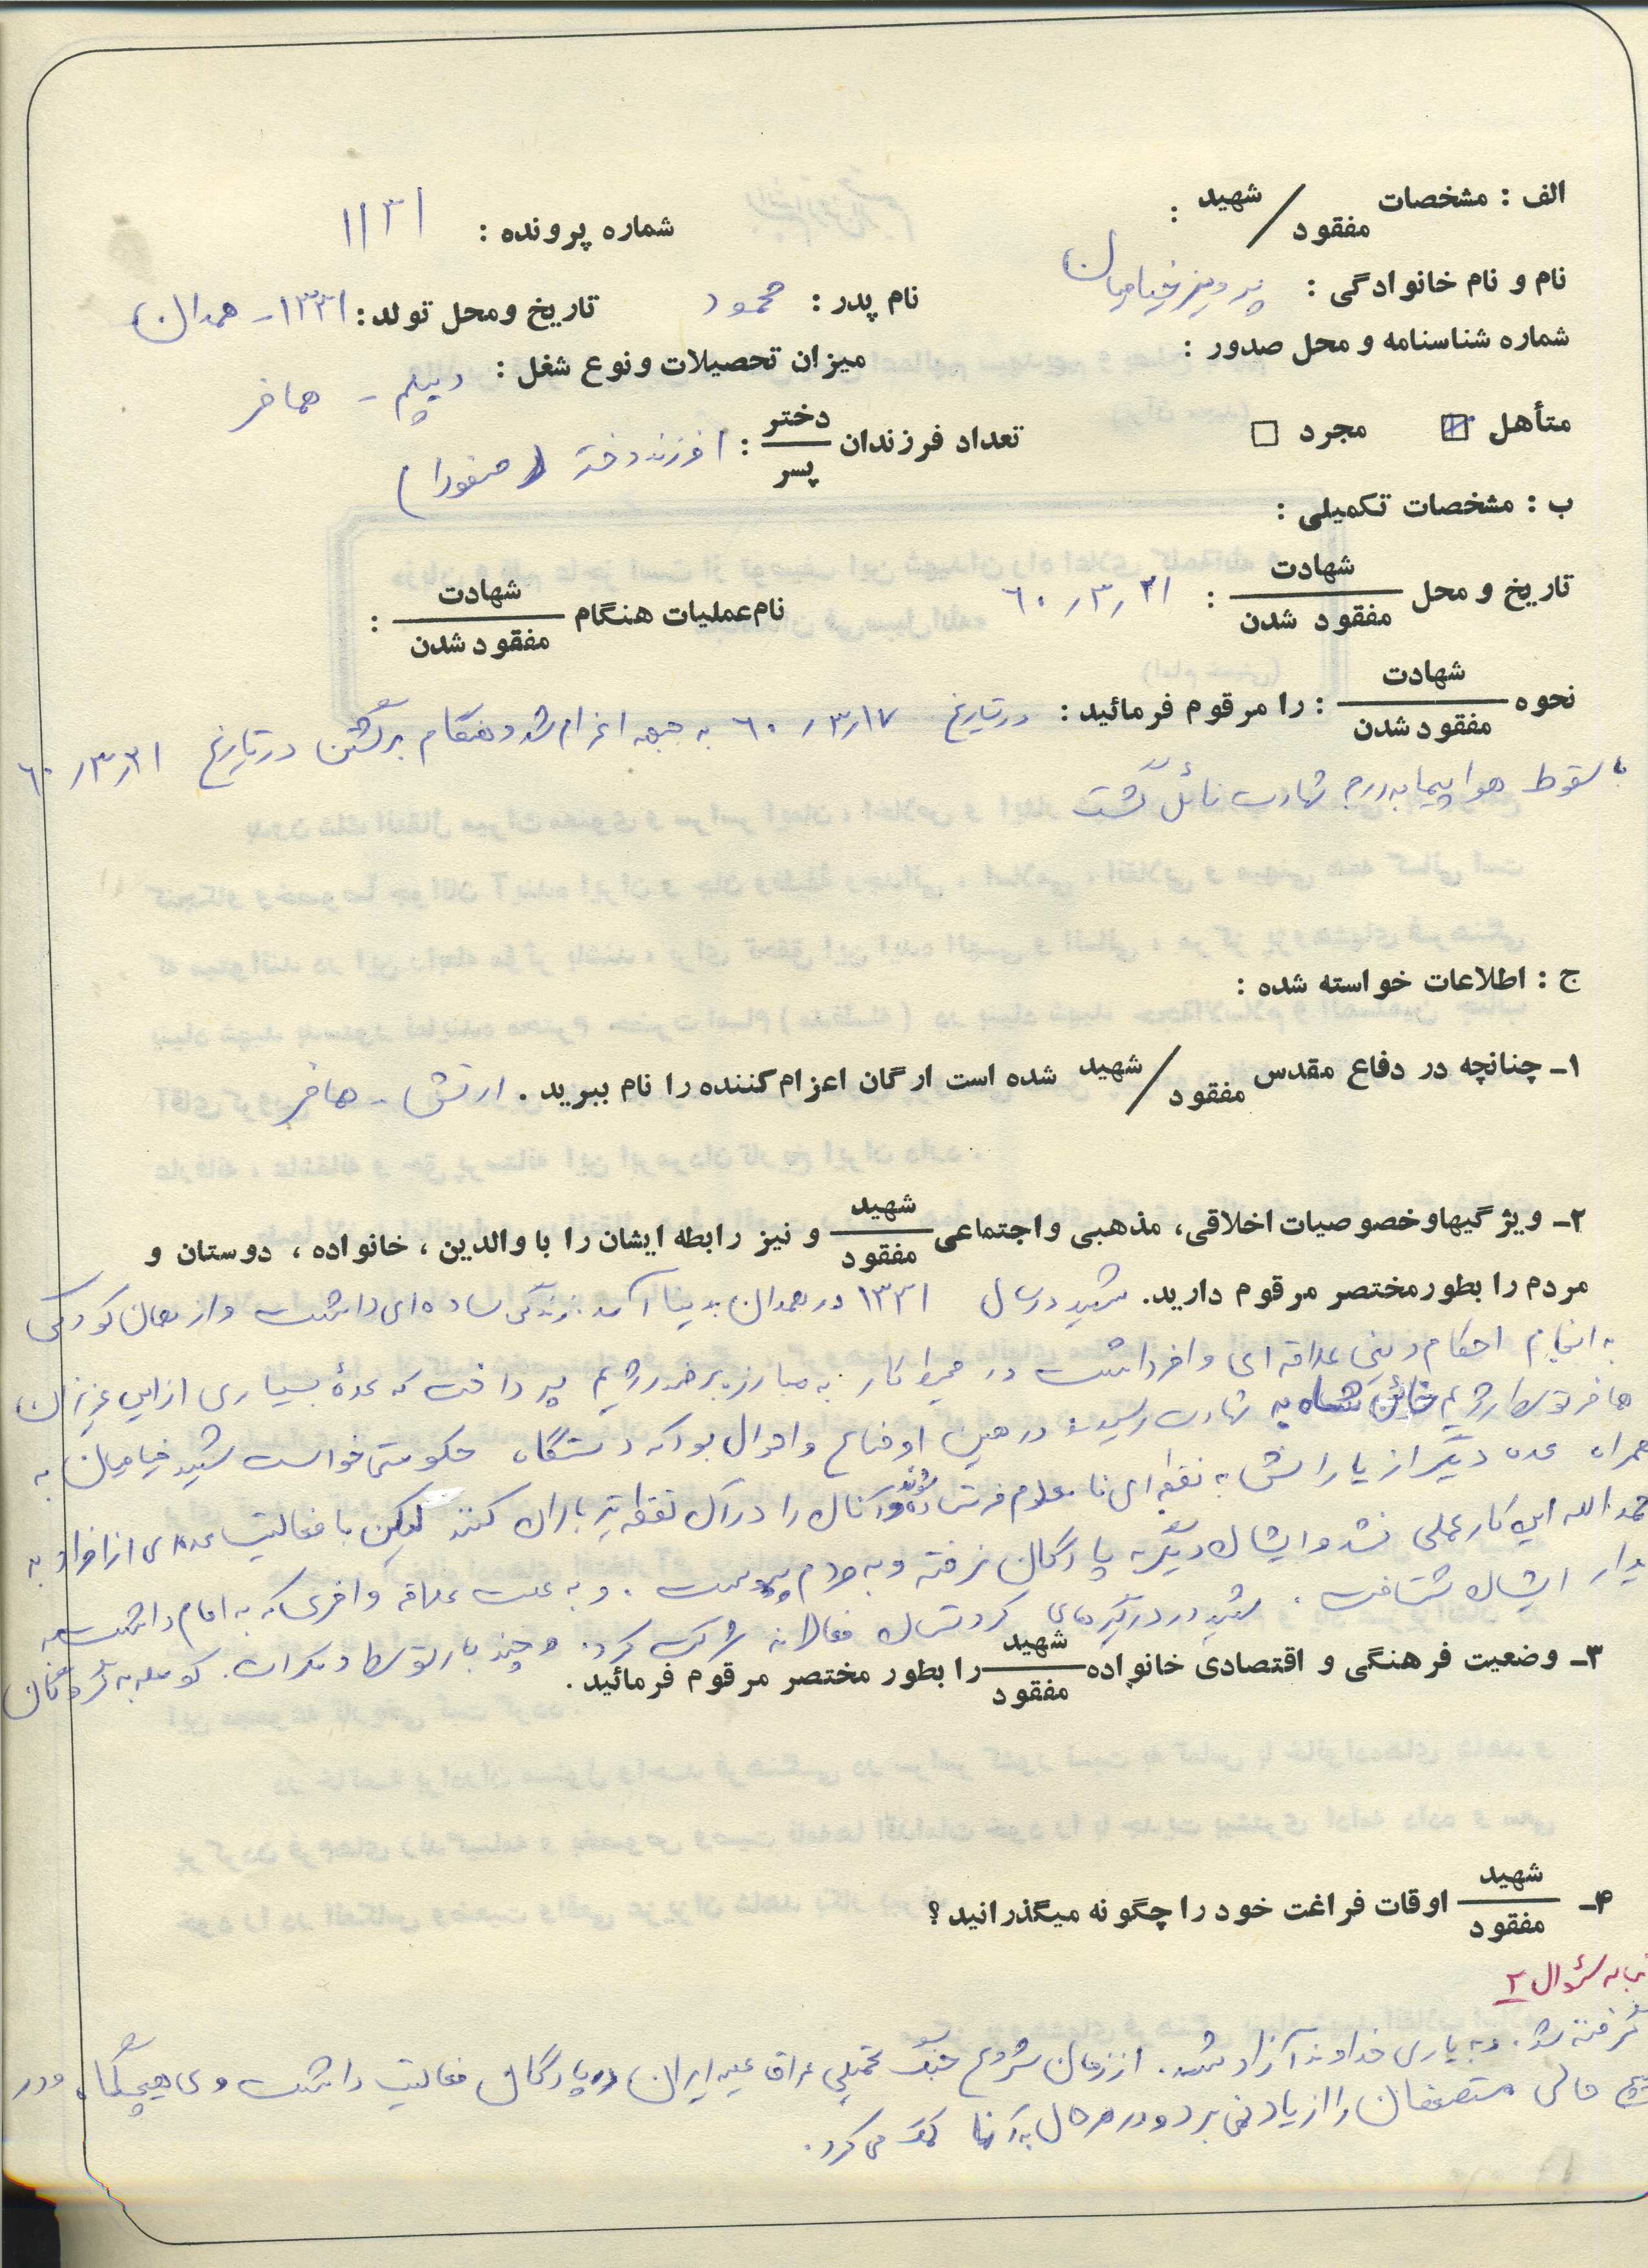 الف : مشخصات شهید / مفقود :
شماره پرونده : ۱۱۳۱
نام و نام خانوادگی : پرویز خیامیان نام پدر : محمود تاریخ ومحل تولد : ۱۳۳۱ - همدان
شماره شناسنامه و محل صدور : میزان تحصیلات ونوع شغل : دیپلم - همافر
متأهل مجرد تعداد فرزندان دختر / پسر : ۱ فرزند دختر (صفورا)
ب : مشخصات تکمیلی :
تاریخ و محل شهادت / مفقود شدن : ۶۰/۳/۲۱ نام عملیات هنگام شهادت / مفقود شدن :
نحوه شهادت / مفقود شدن : را مرقوم فرمائید : در تاریخ ۶۰/۳/۱۷ به جبهه اعزام شد و هنگام برگشتن در تاریخ ۶۰/۳/۲۱
با سقوط هواپیما به درجه شهادت نائل گشت
ج : اطلاعات خواسته شده :
۱ـ چنانچه در دفاع مقدس شهید / مفقود شده است ارگان اعزام کننده را نام ببرید . ارتش - همافر
۲ـ ویژگیهاوخصوصیات اخلاقی، مذهبی واجتماعی شهید / مفقود و نیز رابطه ایشان را با والدین ، خانواده ، دوستان و
مردم را بطورمختصر مرقوم دارید. شهید در سال ۱۳۳۱ در همدان بدنیا آمد. زندگی ساده ای داشت و از همان کودکی
به انجام احکام دینی علاقه ای وافر داشت در محیط کار به مبارزه بر ضد رژیم پرداخت که عدهٔ بسیاری از این عزیزان
همافر توسط رژیم خائن شاه به شهادت رسیدند در همین اوضاع و احوال بود که دستگاه حکومتی خواست شهید خیامیان به
همراه عده دیگر از یارانش به نقطه ای نامعلوم فرستاده شوند و آنان را در آن نقطه تیرباران کنند لیکن با فعالیت عده ای از افراد به
حمدالله این کار عملی نشد و ایشان دیگر به پادگان نرفته و به مردم پیوست . و به علت علاقه وافری که به امام داشت به
دیدار ایشان شتافت . شهید در درگیریهای کردستان فعالانه شرکت کرد. و چند بار توسط دمکرات. کومله به گروگان
۳ـ وضعیت فرهنگی و اقتصادی خانواده شهید / مفقود را بطور مختصر مرقوم فرمائید .
۴ـ شهید / مفقود اوقات فراغت خود را چگونه میگذرانید ؟
به سؤال ۲
گرفته شد . و به یاری خداوند آزاد شد . از زمان شروع جنگ تحمیلی عراق علیه ایران در پادگان فعالیت داشت وی هیچگاه و در
هیچ حالی مستضعفان را از یاد نمی برد و در هر حال به آنها کمک می کرد .